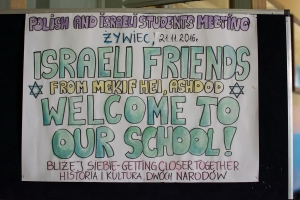 POLISH AND ISRAELI STUDENTS MEETING
ŻYWIEC, 21.11.2016.
ISRAELI FRIENDS
FROM MEKIF HEI, ASHDOD
WELCOME TO
OUR SCHOOL!
BLIŻEJ SIEBIE - GETTING CLOSER TOGETHER
HISTORIA I KULTURA, DWÓCH NARODÓW